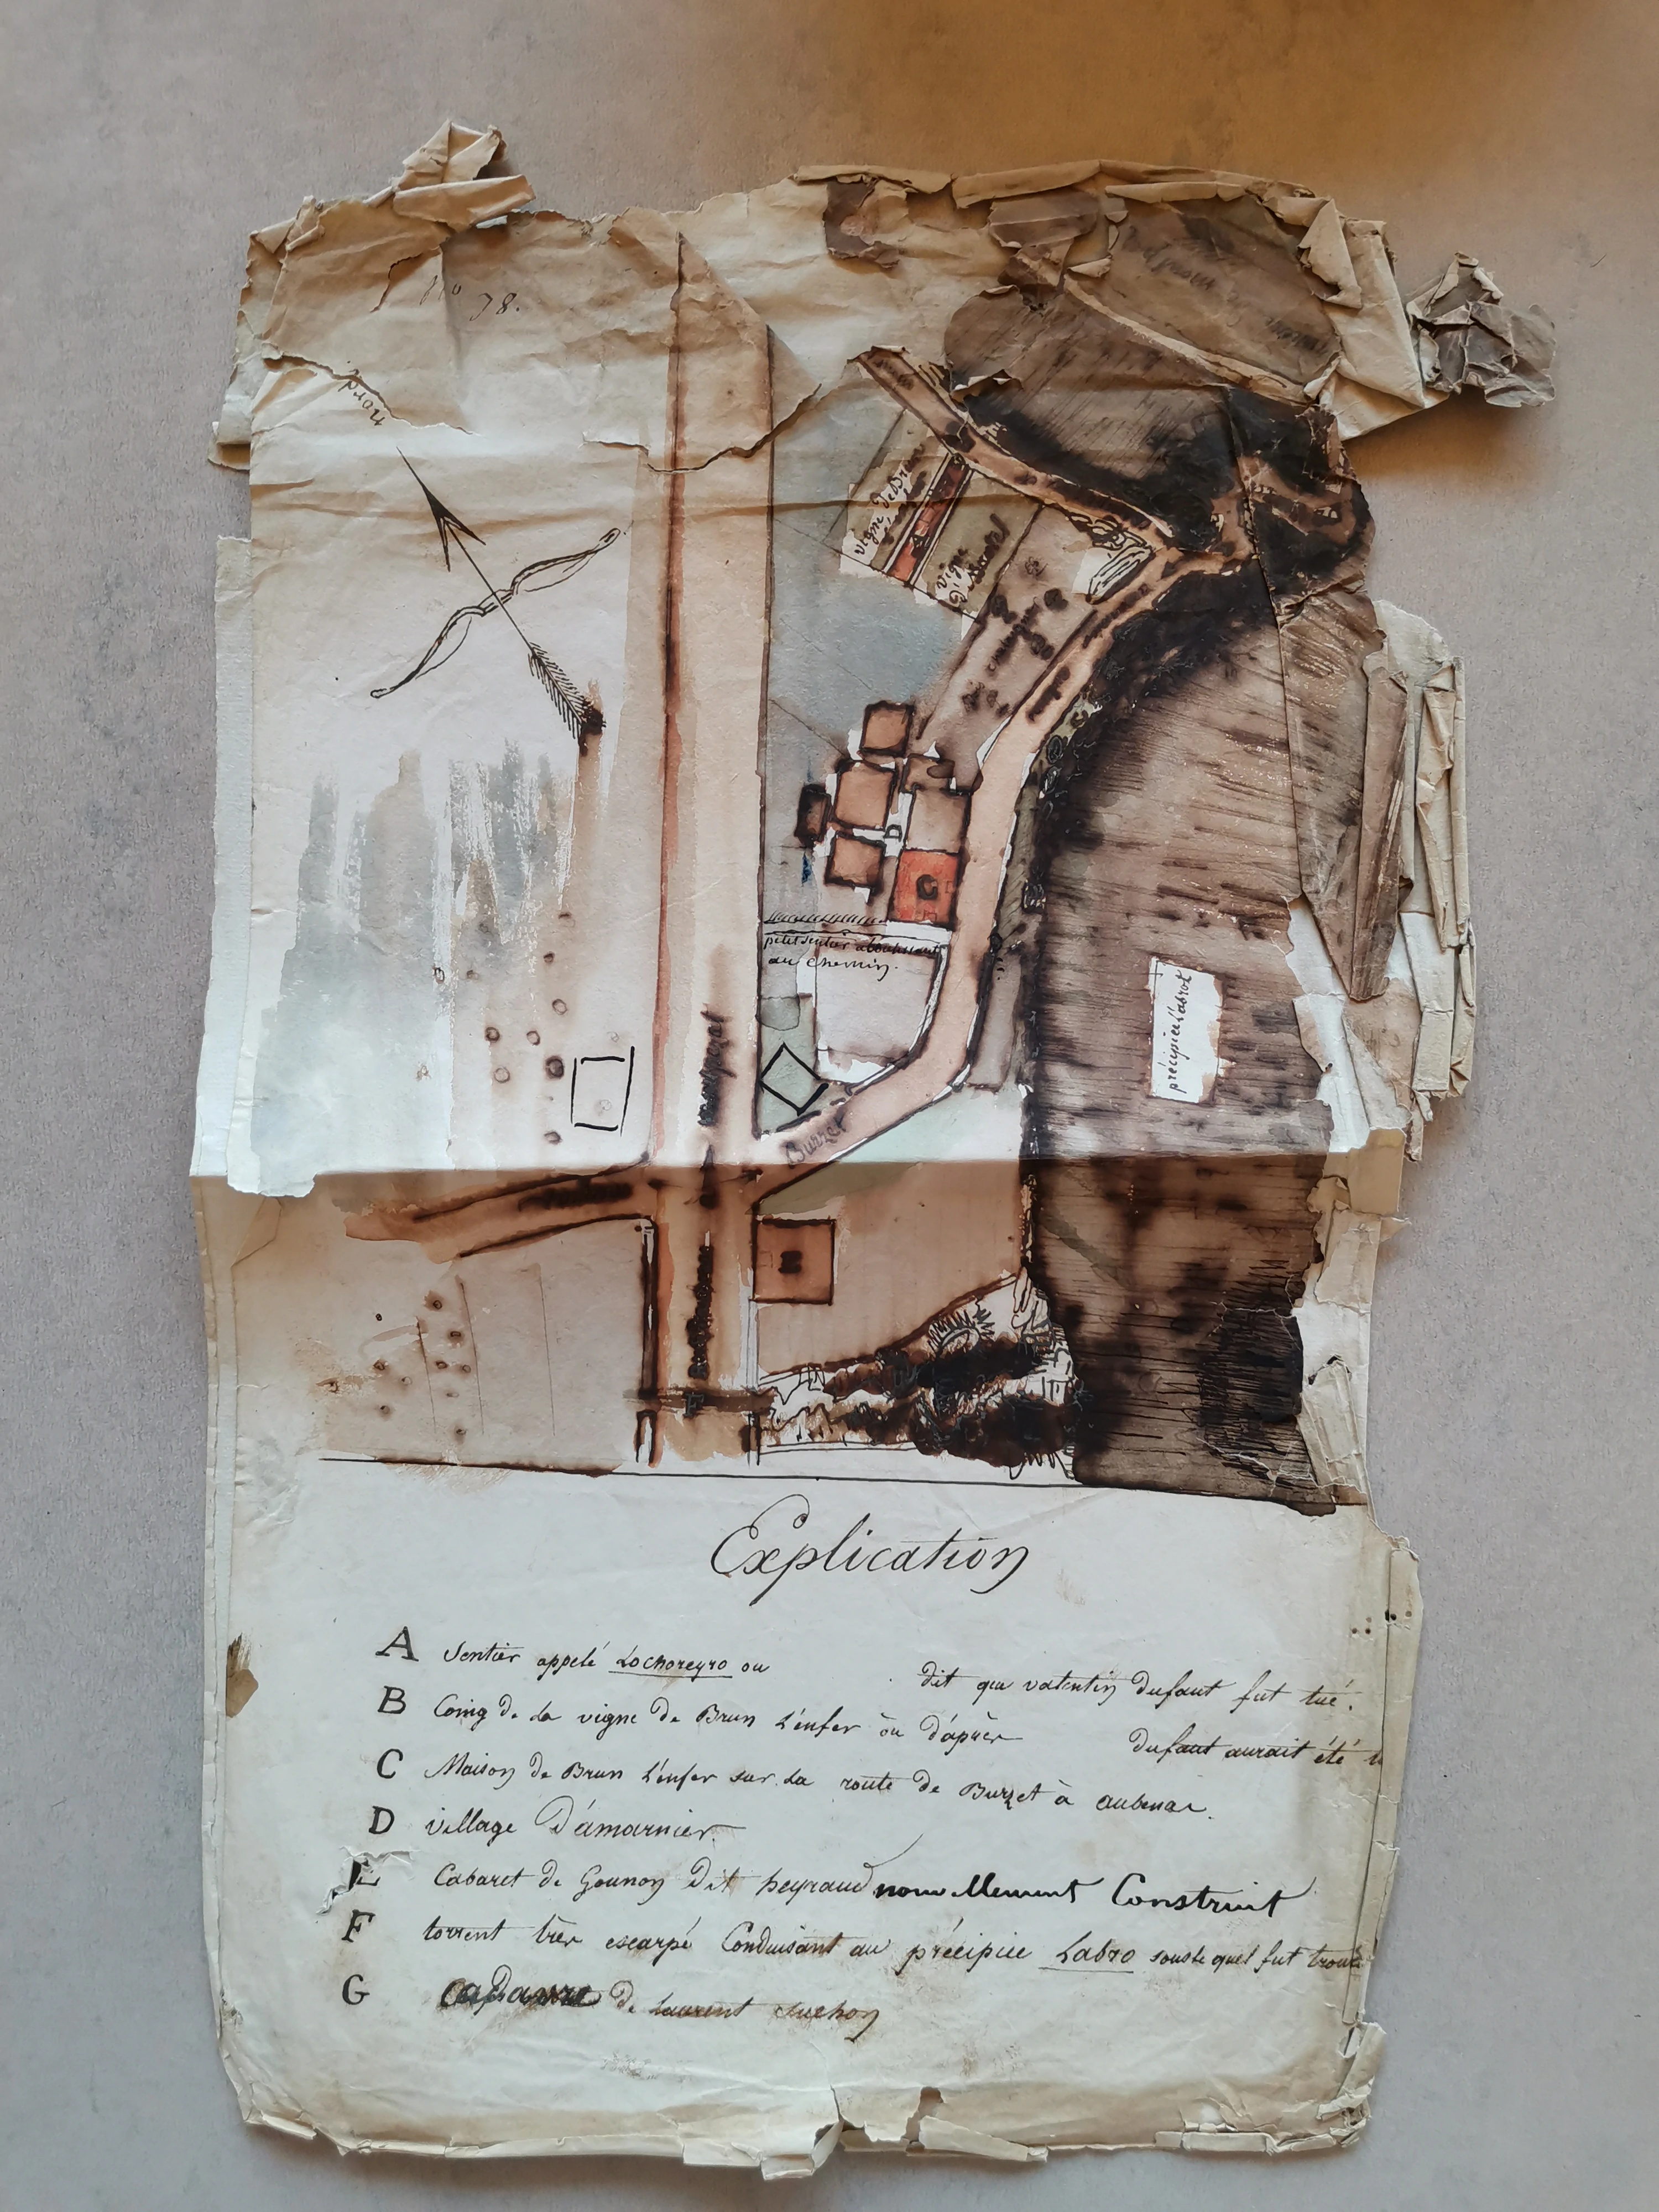 No 78.
nord
vigne de Brun
vigne
commune
D
G
petit sentier aboutissant
au chemin.
précipice Labrot
montpezat
Burzet
E
F
Explication
A Sentier appelé Lochoreyro ou dit que valentin dufaut fut tué.
B Coing de la vigne de Brun L'enfer ou d'après dufaut aurait été
C Maison de Brun L'enfer sur la route de Burzet à aubenas.
D village D'amarnier.
E Cabaret de Gounon Dit heyraud nouvellement Construit
F torrent très escarpé Conduisant au précipice Labro sous le quel fut trouvé
G de Laurent suchon